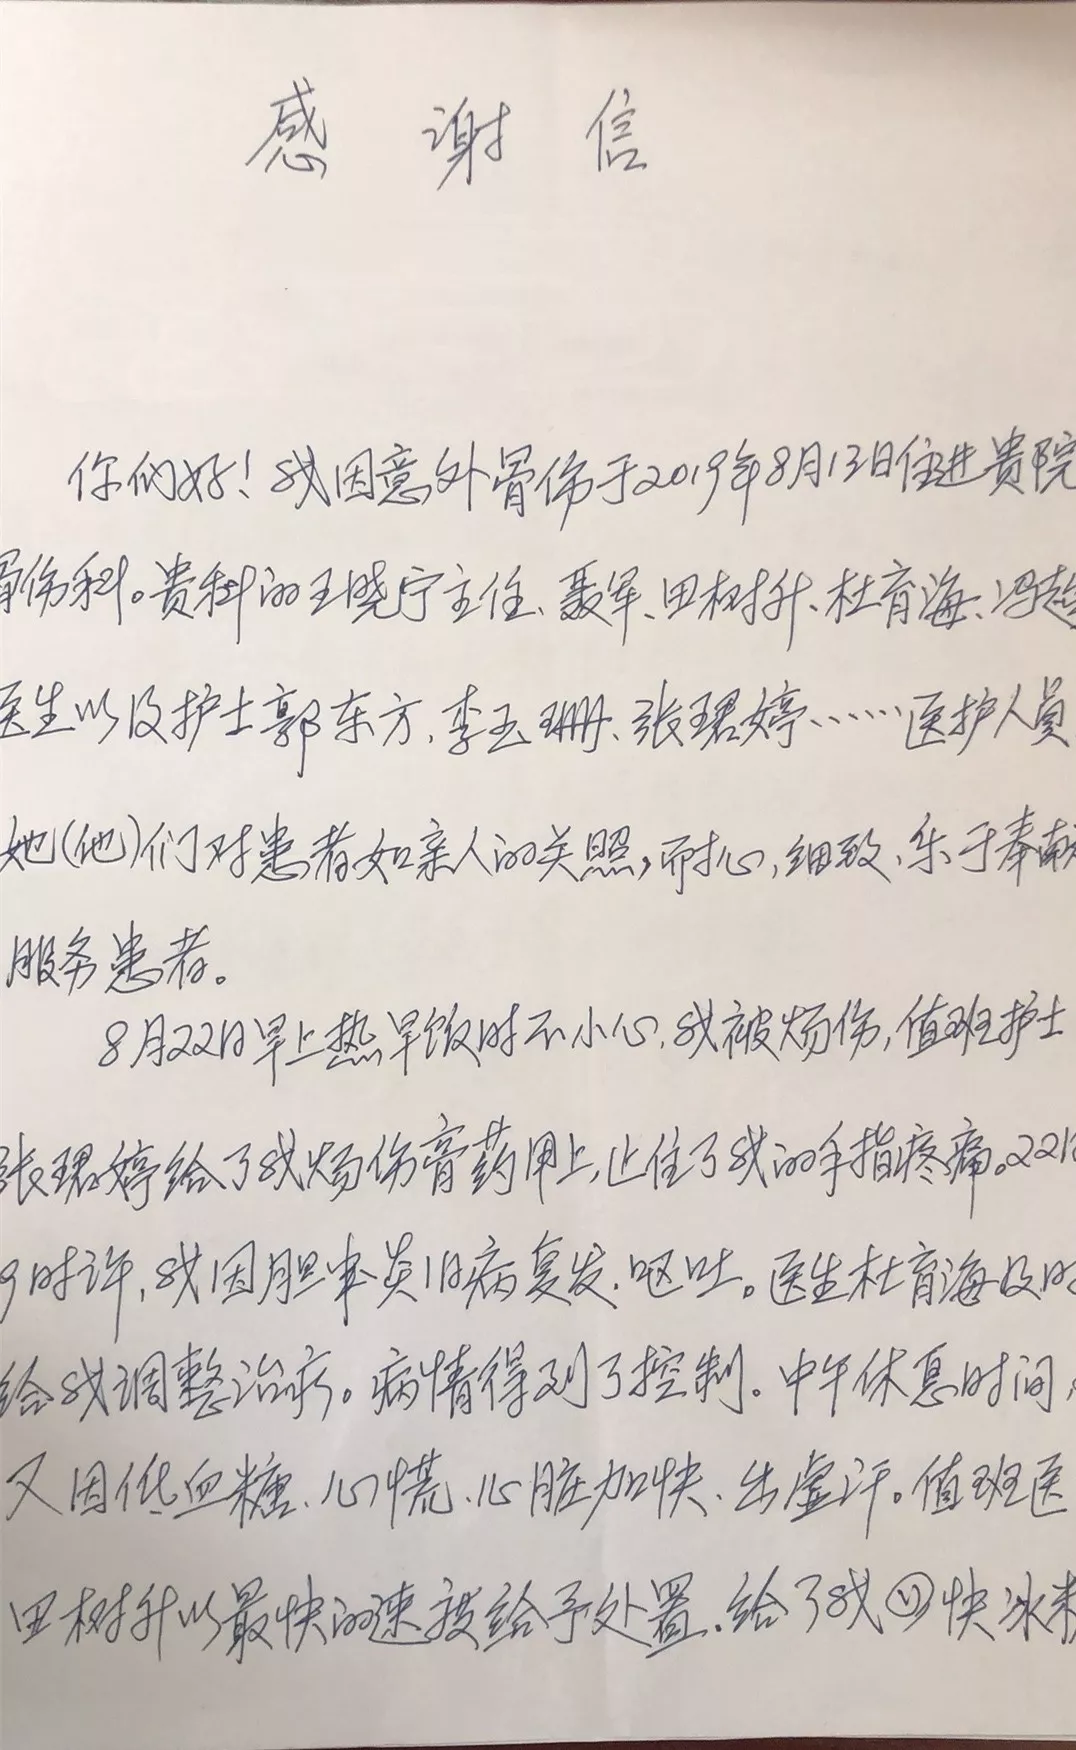 感谢信
你们好！我因意外骨伤于2019年8月13日住进贵院
骨伤科。贵科的王晓宁主任、聂军、田树升、杜育海、冯超
医生以及护士郭东方、李玉珊、张珺婷……医护人员
她(他)们对患者如亲人的关照，耐心，细致、乐于奉献
服务患者。
8月22日早上热早饭时不小心，我被烫伤，值班护士
张珺婷给了我烫伤膏药用上，止住了我的手指疼痛。22日
9时许，我因胆囊炎旧病复发、呕吐。医生杜育海及时
给我调整治疗。病情得到了控制。中午休息时间，
又因低血糖、心慌、心脏加快、出虚汗。值班医
田树升以最快的速度给予处置、给了我 快冰糖